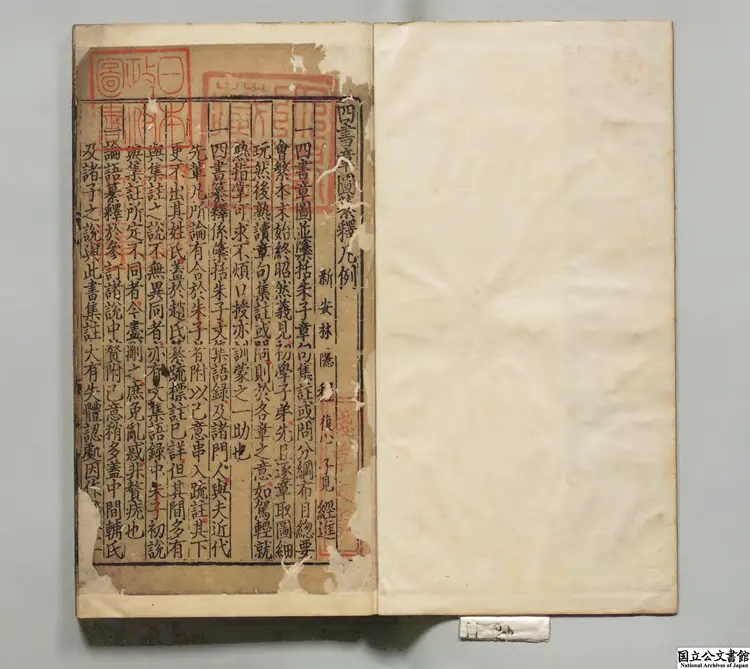 四書章圖纂釋凡例
新安林隱程復心子見經進
一四書章圖並檃括朱子章句集註或問分綱布目總要
會繁本末始終昭然義見初學子弟先且逐章取圖細
玩然後熟讀章句集註或問則於各章之意如駕輕就
熟指掌可求不煩口授亦訓蒙之一助也
一四書纂釋係檃括朱子文集語録及諸門人與夫近代
先輩凡所論有合於朱子者附以己意串入疏註其下
更不出其姓氏蓋於趙氏纂疏標註已詳但其間多有
與集註之說不無異同者亦有文集語錄中朱子初說
與集註所定不同者今盡刪之庶免亂惑非贅疣也
一論語纂釋於參訂諸說中贅附己意稍多蓋中間輔氏
及諸子之說與此書集註大有失體認處因
日本
政府
圖書
国立公文書館
National Archives of Japan